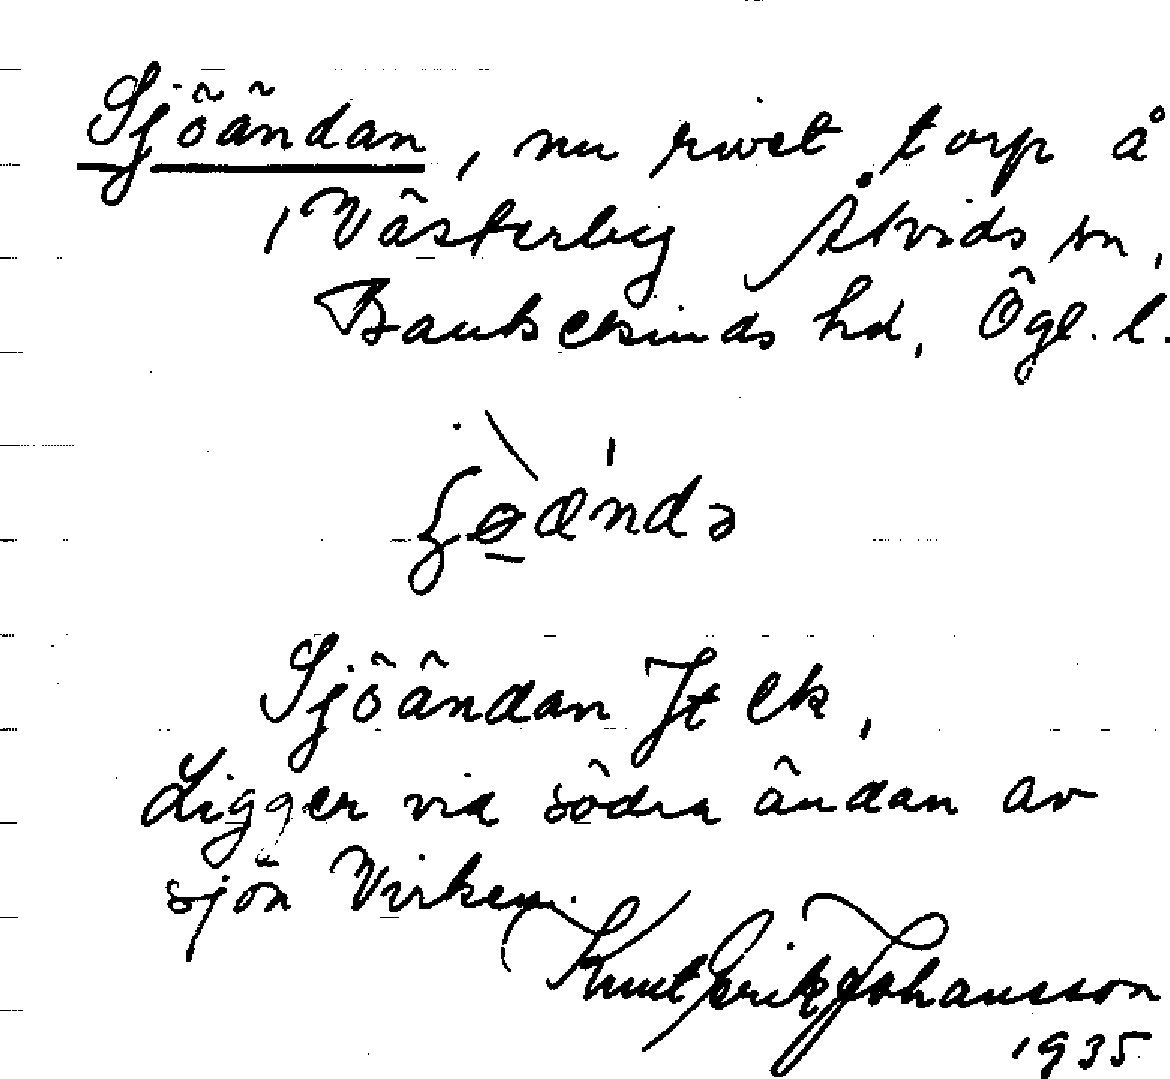 Sjöändan, nu rivet torp å
Västerby Åtvids sn,
Bankekinds hd, Ögl. l.
Sjöändan Jt ek,
Ligger vid södra ändan av
sjön Virken.
Knut Erik Johansson
1935